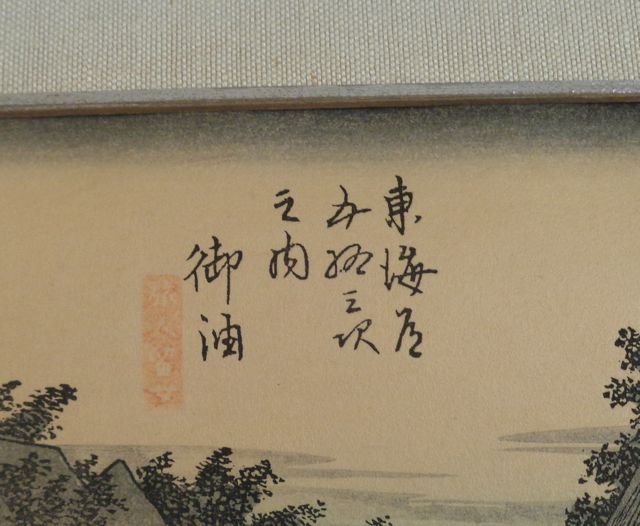 東海道
五拾三次
之内
御油